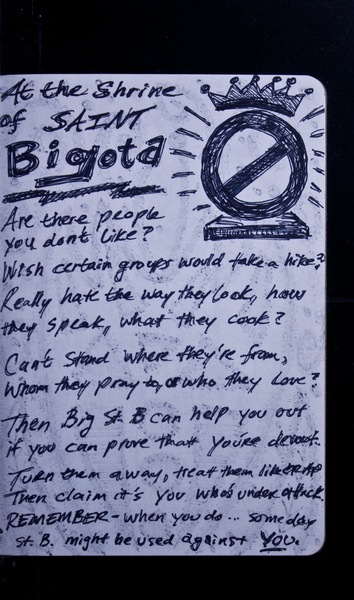 At the Shrine
of SAINT
Bigota
Are there people
you dont like?
Wish certain groups would take a hike?
Really hate the way they look, how
they speak, what they cook?
Can't stand where they're from,
whom they pray to, or who they love?
Then Big St. B can help you out
if you can prove that you're devout.
Turn them away, treat them like
Then claim it's you who's under attack.
REMEMBER - when you do... someday
St. B. might be used against You.